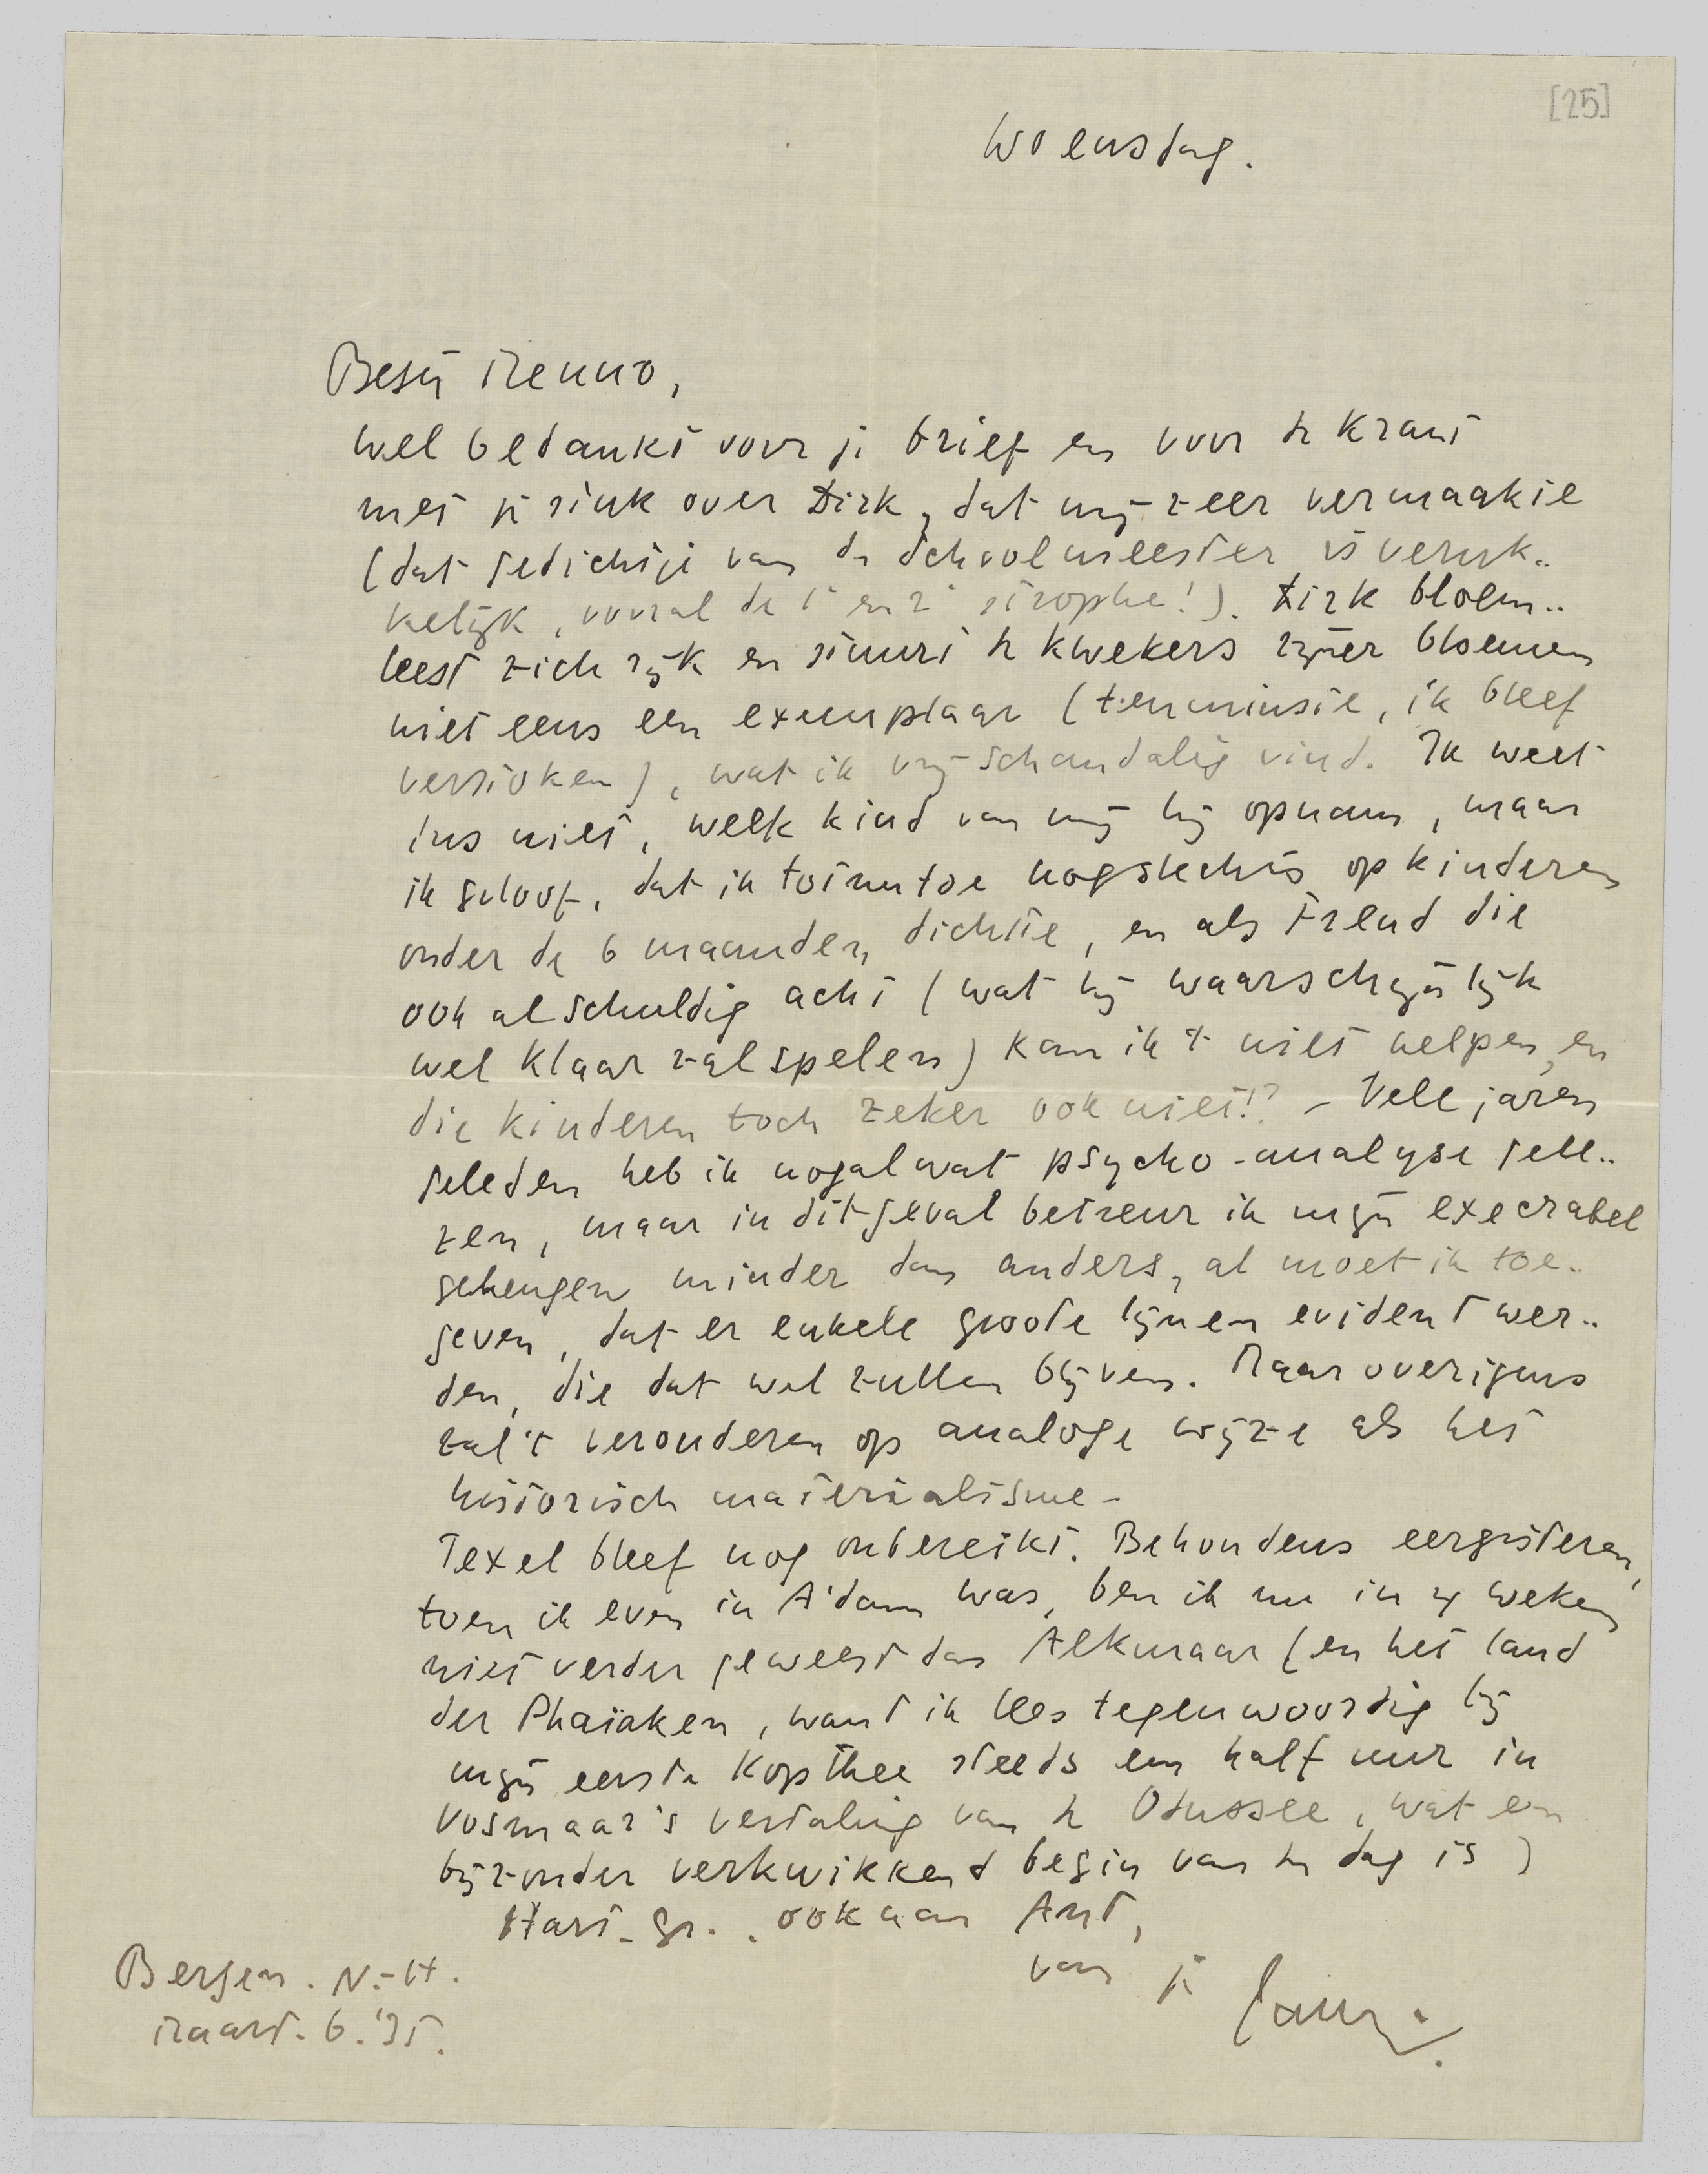 [25]
Woensdag.
Beste Menno,
wel bedankt voor je brief en voor de krant
met je stuk over Dirk, dat mij zeer vermaakte
(dat gedichtje van de Schoolmeester is verruk-
kelijk, vooral de 1e en 2e strophe!). Dirk bloem-
leest zich rijk en stuurt de kwekers zijner bloemen
niet eens een exemplaar (tenminste, ik bleef
verstoken), wat ik vrij schandalig vind. Ik weet
dus niet, welk kind van mij hij opnam, maar
ik geloof, dat ik tot nu toe nog slechts op kinderen
onder de 6 maanden dichtte, en als Freud die
ook al schuldig acht (wat hij waarschijnlijk
wel klaar zal spelen) kan ik 't niet helpen, en
die kinderen toch zeker ook niet!? – Vele jaren
geleden heb ik nogal wat psycho-analyse gele-
zen, maar in dit geval betreur ik mijn execrabel
geheugen minder dan anders, al moet ik toe-
geven, dat er enkele groote lijnen evident wer-
den, die dat wel zullen blijven. Maar overigens
zal 't verouderen op analoge wijze als het
historisch materialisme –
Texel bleef nog onbereikt. Behoudens eergisteren,
toen ik even in A'dam was, ben ik nu in 4 weken
niet verder geweest dan Alkmaar (en het land
der Phaiaken, want ik lees tegenwoordig bij
mijn eerste kop thee steeds een half uur in
Vosmaar's vertaling van de Odussee, wat een
bijzonder verkwikkend begin van de dag is)
Hart. gr., ook aan Ant,
van je
Bergen. N.-H.
Maart. 6. '35.